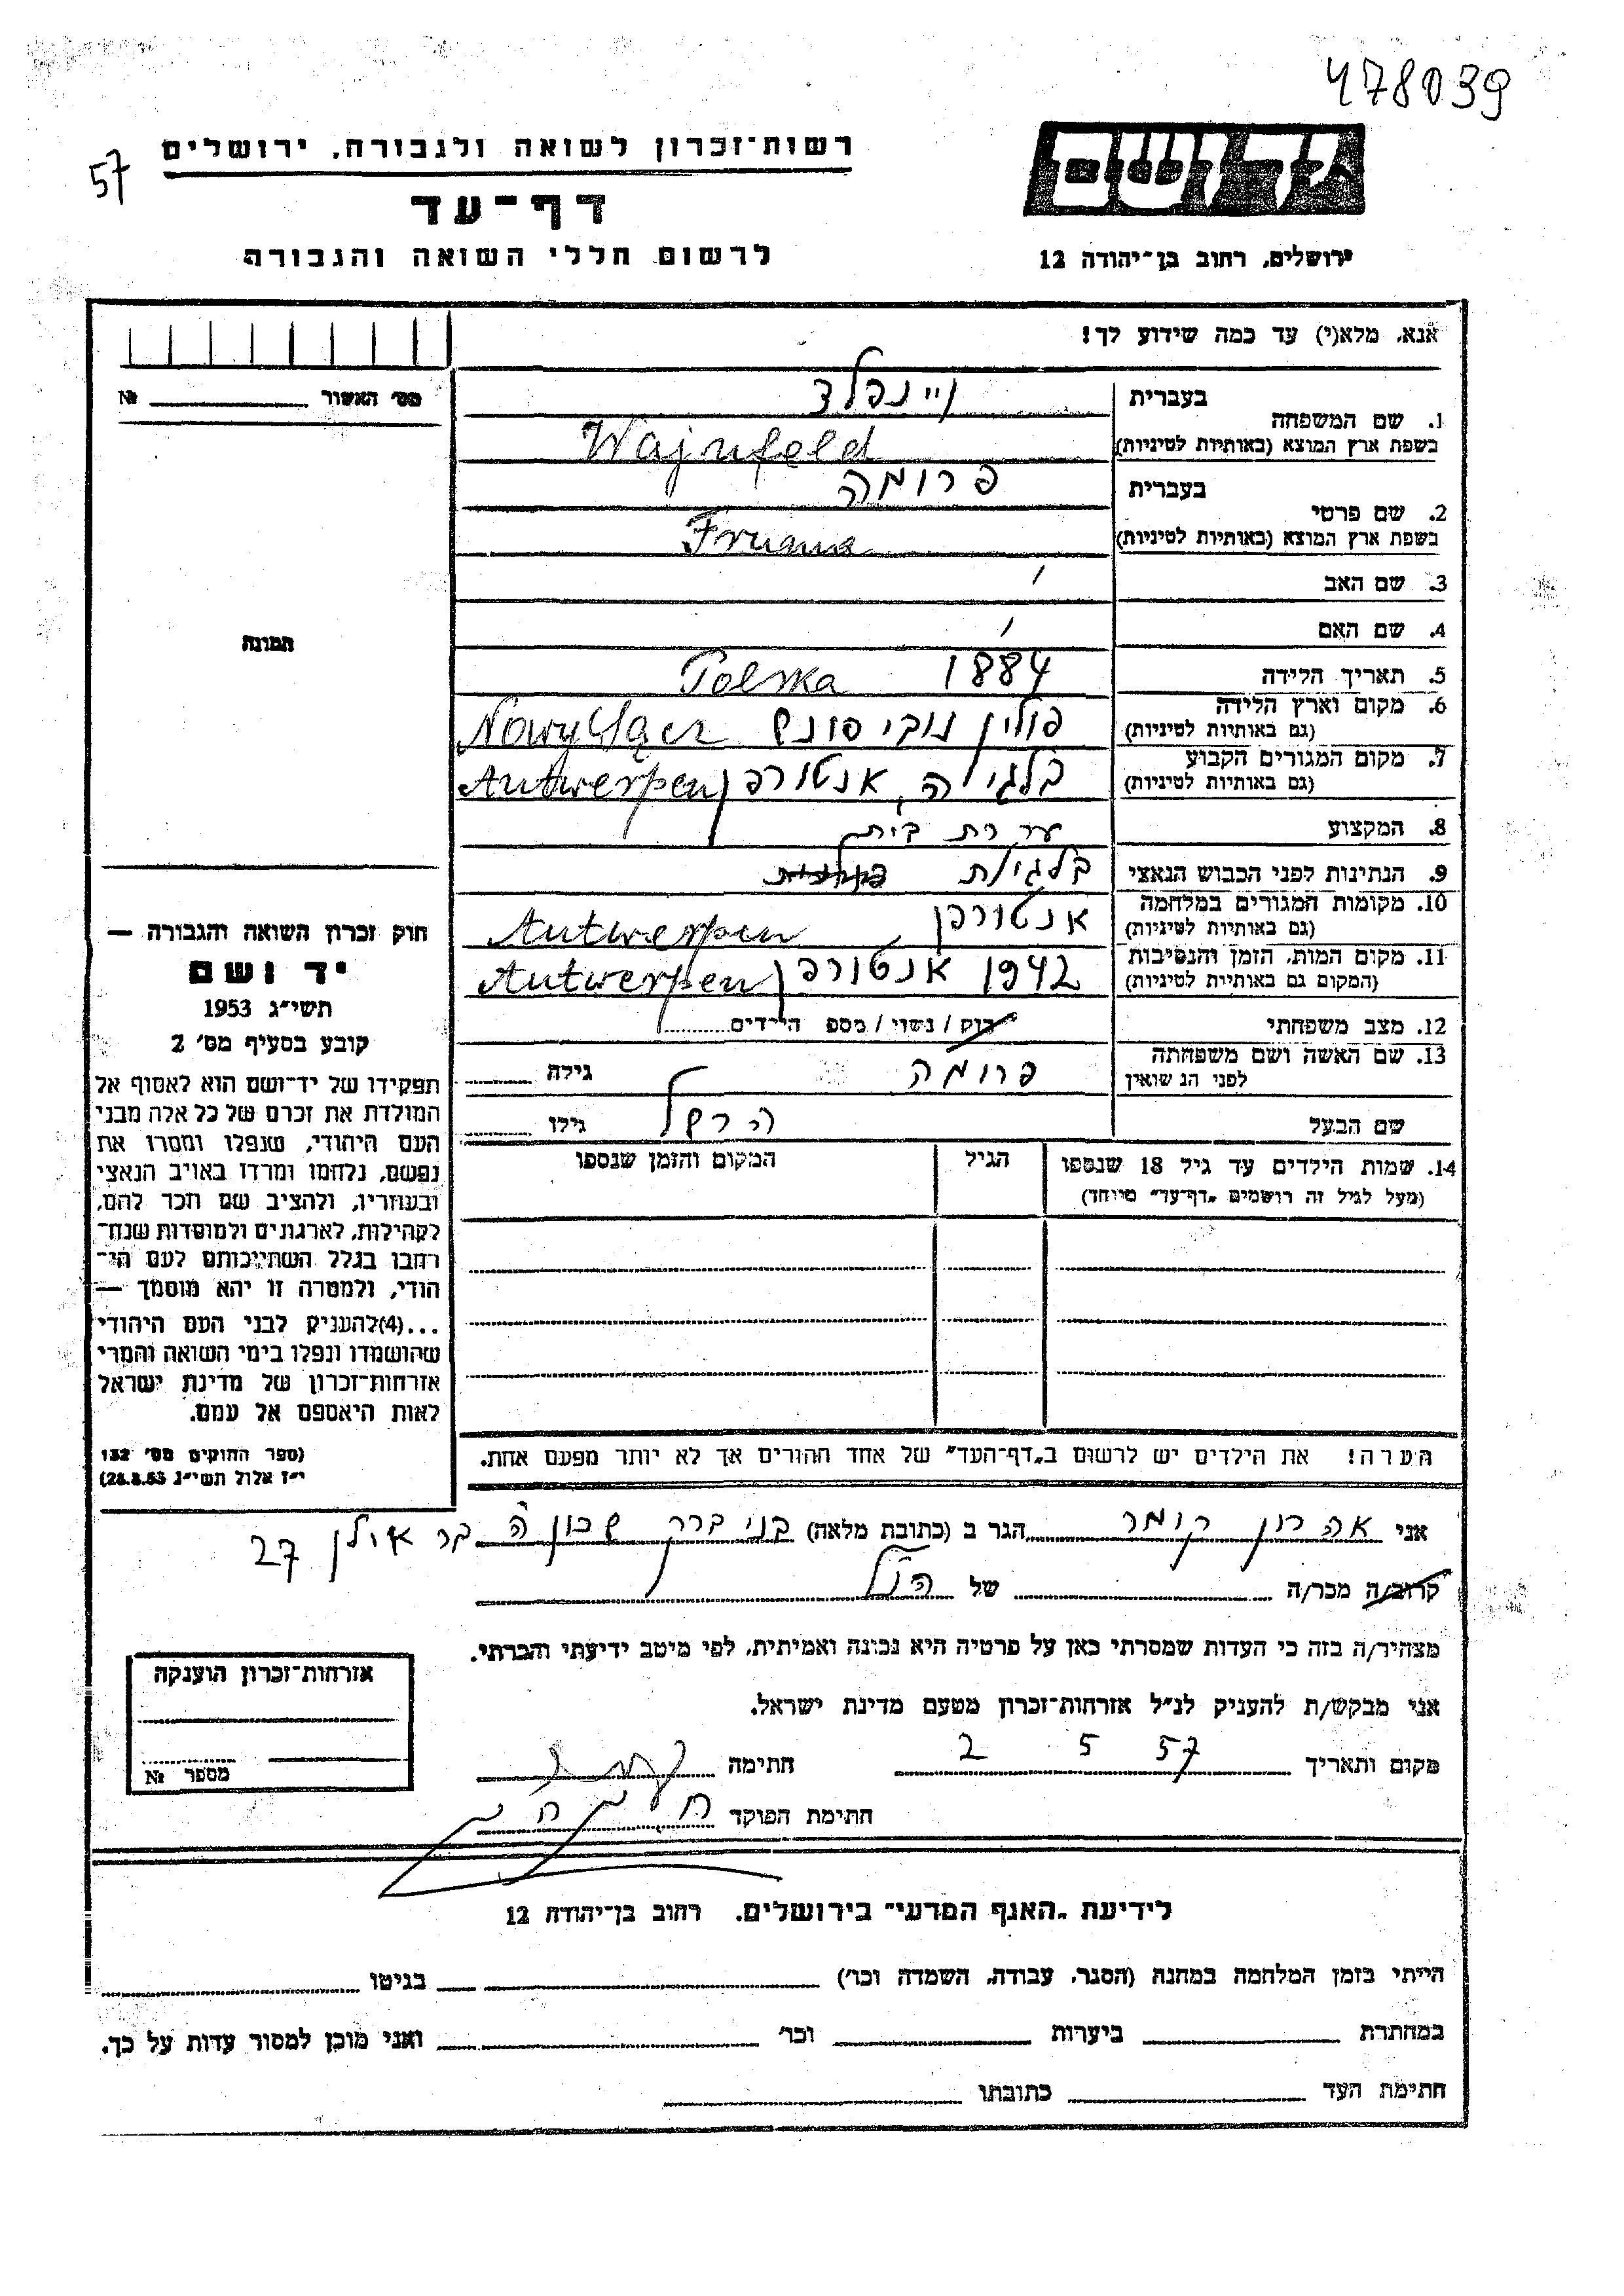 478039
57
רשות־זכרון לשואה ולגבורה, ירושלים
דף־עד
לרשום חללי השואה והגבורה
יד ושם
ירושלים, רחוב בן־יהודה 12
אנא, מלא(י) עד כמה שידוע לך!
מס׳ האשור № 
1. שם המשפחה
בעברית
ויינפלד
בשפת ארץ המוצא (באותיות לטיניות)
Wajnfeld
2. שם פרטי
בעברית
פרומה
בשפת ארץ המוצא (באותיות לטיניות)
Fruma
3. שם האב
4. שם האם
תמונה
5. תאריך הלידה 1884 Polska
6. מקום וארץ הלידה
(גם באותיות לטיניות)
פולין נובי סונש Nowy Sącz
7. מקום המגורים הקבוע
(גם באותיות לטיניות)
בלגיה, אנטורפן Antwerpen
8. המקצוע עקרת בית
9. הנתינות לפני הכבוש הנאצי בלגית
10. מקומות המגורים במלחמה
(גם באותיות לטיניות)
אנטורפן Antwerpen
11. מקום המות, הזמן והנסיבות
(המקום גם באותיות לטיניות)
1942 אנטורפן Antwerpen
12. מצב משפחתי רוק / נשוי / מספ הילדים
13. שם האשה ושם משפחתה
לפני הנשואין
פרומה גילה
שם הבעל הרשל גילו
14. שמות הילדים עד גיל 18 שנספו הגיל המקום והזמן שנספו
(מעל לגיל זה רושמים „דף־עד״ מיוחד)
הערה! את הילדים יש לרשום ב„דף־העד״ של אחד ההורים אך לא יותר מפעם אחת.
חוק זכרון השואה והגבורה —
יד ושם
תשי״ג 1953
קובע בסעיף מס׳ 2
תפקידו של יד־ושם הוא לאסוף אל
המולדת את זכרם של כל אלה מבני
העם היהודי, שנפלו ומסרו את
נפשם, נלחמו ומרדו באויב הנאצי
ובעוזריו, ולהציב שם וזכר להם,
לקהילות, לארגונים ולמוסדות שנח־
רבו בגלל השתייכותם לעם הי־
הודי, ולמטרה זו יהא מוסמך —
...(4)להעניק לבני העם היהודי
שהושמדו ונפלו בימי השואה והמרי
אזרחות־זכרון של מדינת ישראל
לאות היאספם אל עמם.
(ספר החוקים מס׳ 132
י״ז אלול תשי״ג 28.8.53)
אני אהרון קומר הגר ב (כתובת מלאה) בני ברק שכונה ה בר אילן 27
קרוב/ה מכר/ה של הנ״ל
מצהיר/ה בזה כי העדות שמסרתי כאן על פרטיה היא נכונה ואמיתית, לפי מיטב ידיעתי והכרתי.
אני מבקש/ת להעניק לנ״ל אזרחות־זכרון מטעם מדינת ישראל.
מקום ותאריך 2 5 57 חתימה
חתימת הפוקד
אזרחות־זכרון הוענקה
מספר №
לידיעת „האגף המדעי״ בירושלים, רחוב בן־יהודה 12
הייתי בזמן המלחמה במחנה (הסגר, עבודה, השמדה וכו׳) בגיטו
במחתרת ביערות וכו׳ ואני מוכן למסור עדות על כך.
חתימת העד כתובתו